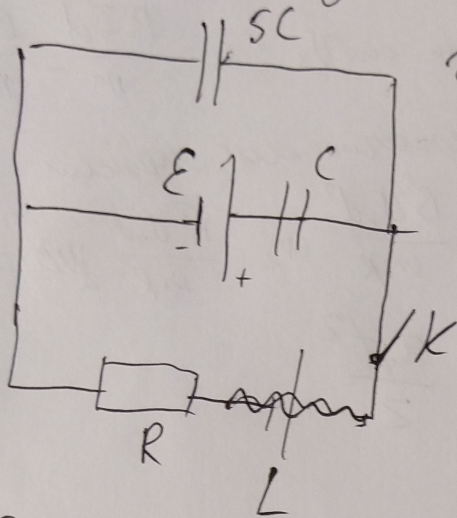 5C
ℰ C
- +
K
R
L